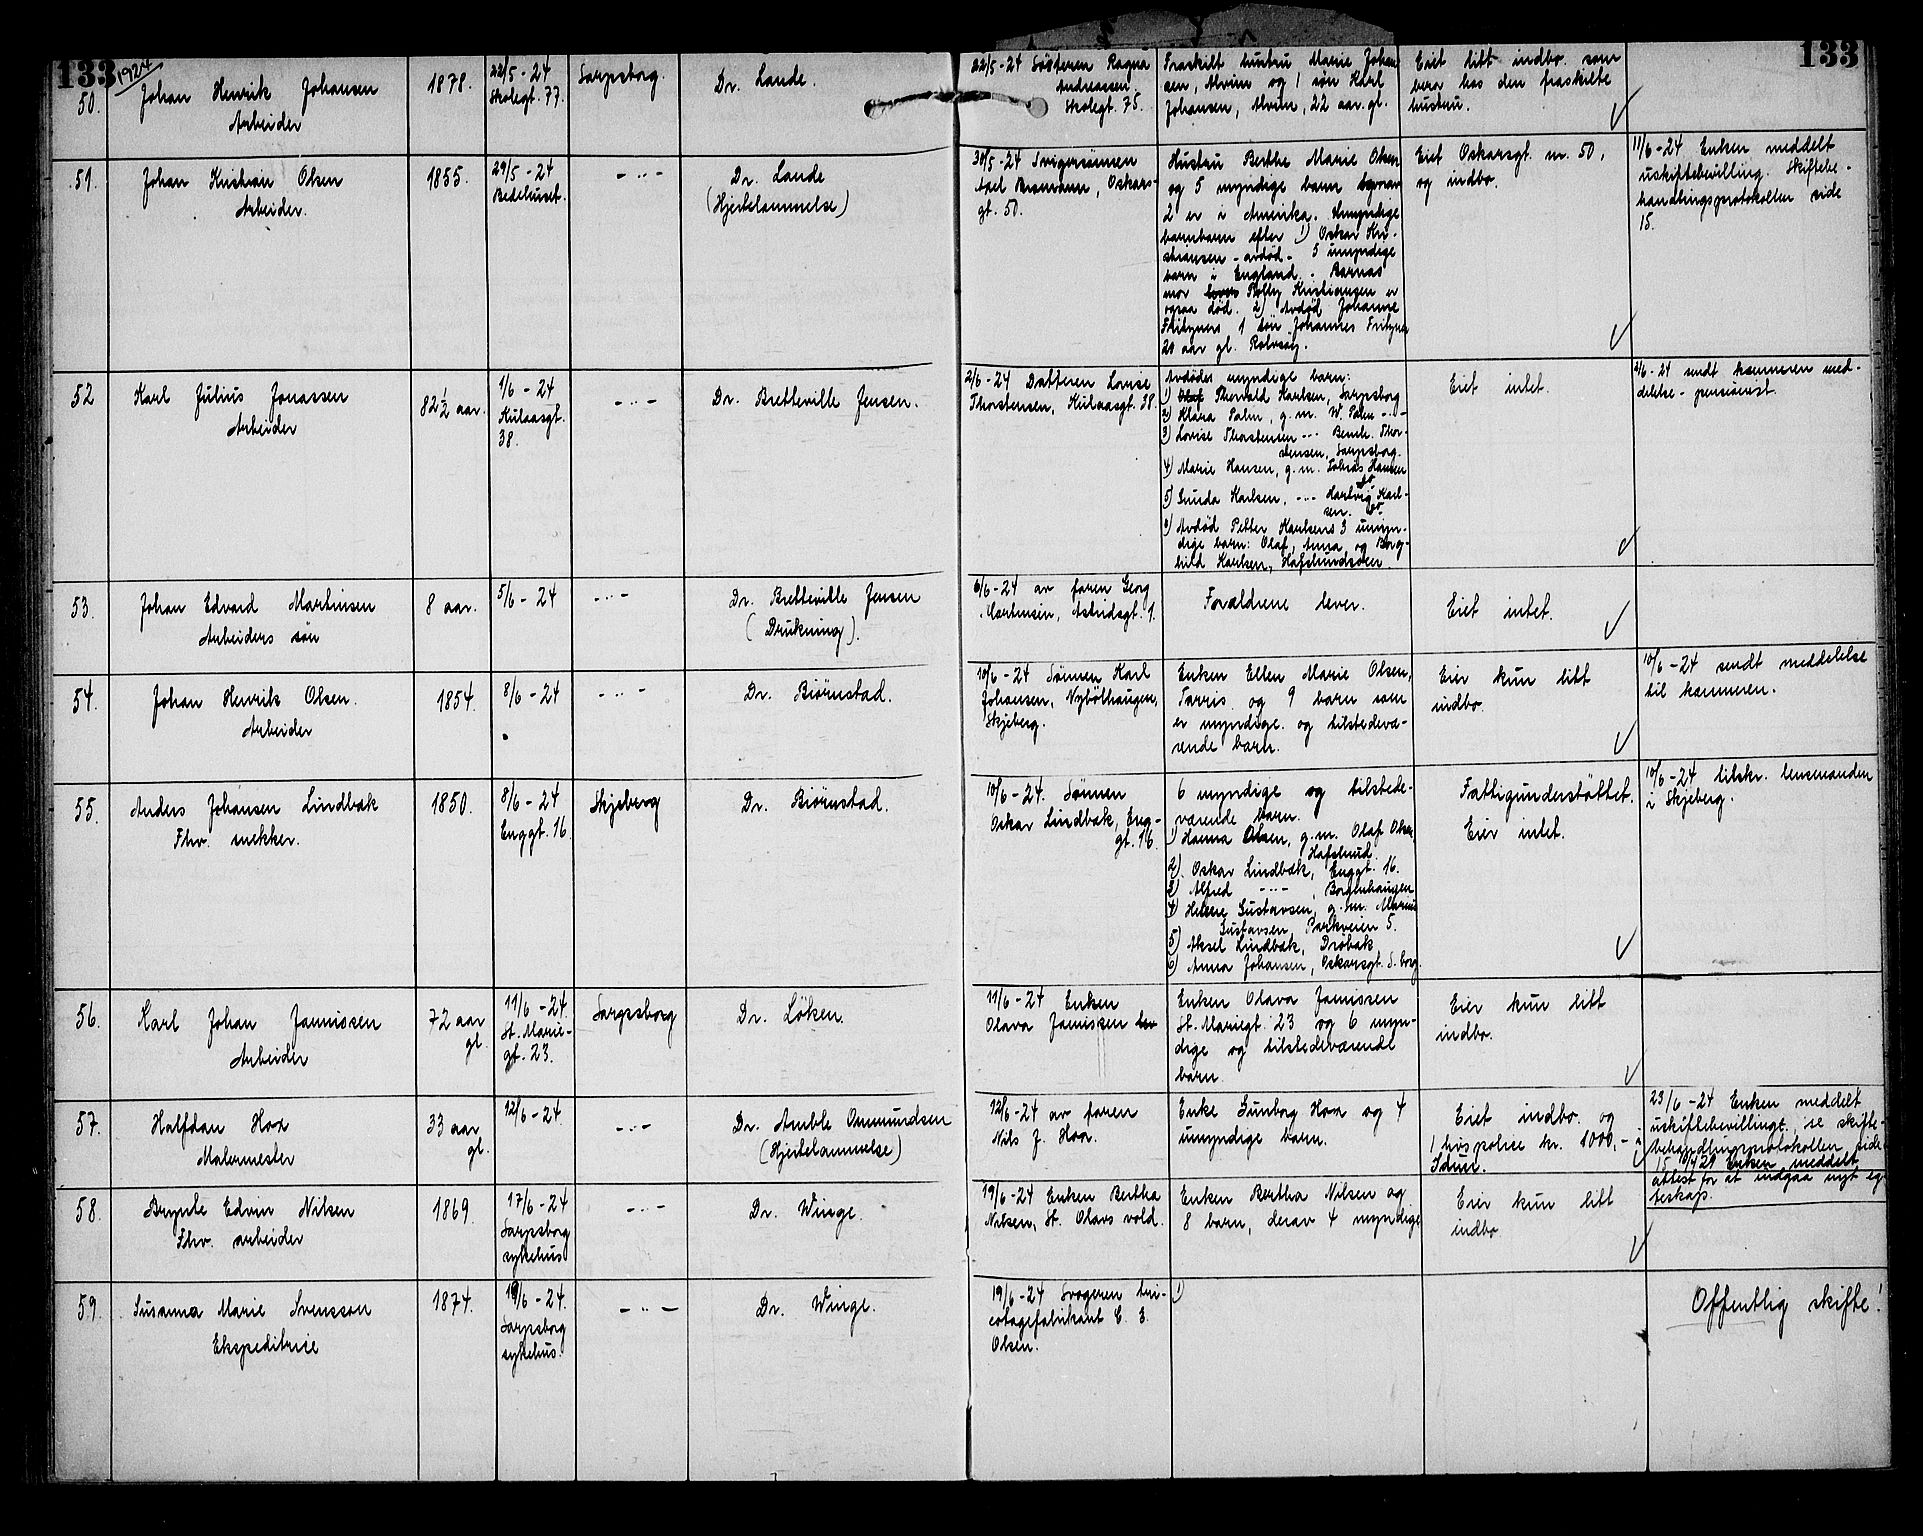 133
133
1924
50.
Johan Henrik Johansen
Arbeider
1878.
22/5 - 24
Skolegt. 77.
Sarpsborg.
Dr. Lande.
22/5 - 24 Søsteren Ragna
Andreassen.
Skolegt. 75.
Fraskilt hustru Marie Johan
sen, Alvim og 1 søn Karl
Johansen, Alvim, 22 aar gl.
Eiet litt indbo som
bero hos den fraskilte
hustru.
51.
Johan Kristian Olsen
Arbeider.
1855.
29/5 - 24
Bedehuset.
- " -
Dr. Lande
(Hjertelammelse)
30/5 - 24 Svigersønnen
Axel Bramann, Oskars-
gt. 50.
Hustru Berthe Marie Olsen
og 5 myndige barn hvorav
2 er i Amerika. Umyndige
barnbarn efter 1) Oskar Kri-
stiansen - avdød - 5 umyndige
barn i England. - Barnas
mor Kristiansen er
ogsaa død. 2) Avdød Johanne
1 søn Johannes
20 aar gl. Rolvsøy.
Eiet Oskarsgt. nr. 50,
og indbo.
11/6 - 24 Enken meddelt
uskiftebevilling. Skiftebe-
handlingsprotokollen side
15.
52
Karl Julius Jonassen
Arbeider
82 1/2 aar.
1/6 - 24
Kulaasgt.
38.
- " -
Dr. Bretteville Jensen.
2/6 - 24 Datteren Lovise
Thorstensen, Kulaasgt. 38.
Avdødes myndige barn:
1) Olaf Thorvald Karlsen, Sarpsborg
2) Klara Palm, g.m. W. Palm - " -
3) Lovise Thorstensen - " - Thor-
stensen, Sarpsborg.
4) Marie Hansen, g.m. Tobias Hansen
do
5) Gunda Karlsen, - " - Hartvig Karl-
sen. do.
6) Avdød Petter Karlsens 3 umyn-
dige barn: Olaf, Anna og Borg-
hild Karlsen, Hafslundsøen
Eiet intet.
2/6 - 24 sendt kæmneren med-
delelse - pensionist.
53.
Johan Edvard Martinsen
Arbeiders søn
8 aar.
5/6 - 24
- " -
Dr. Bretteville Jensen
(Drukning).
6/6 - 24 av faren Georg
Martinsen, Astridsgt. 1.
Forældrene lever.
Eiet intet.
54.
Johan Henrik Olsen.
Arbeider
1854.
8/6 - 24
- " -
Dr. Biørnstad.
10/6 - 24 Sønnen Karl
Johansen, Nybölhaugen,
Skjeberg.
Enken Ellen Marie Olsen,
Tarris og 9 barn som
er myndige og tilstedevæ-
rende barn.
Eier kun litt
indbo.
10/6 - 24 sendt meddelelse
til kæmneren.
55.
Anders Johansen Lindbæk
Fhv. snekker.
1850.
8/6 - 24
Enggt. 16.
Skjeberg
Dr. Biørnstad.
10/6 - 24. Sønnen
Oskar Lindbæk, Eng-
gt. 16.
6 myndige og tilstede-
værende barn.
1) Hanna Olsen, g.m. Olaf Olsen
Hafslund.
2) Oskar Lindbæk, Enggt. 16.
3) Alfred - " - , Borgenhaugen
4) Helene Gustavsen, g.m. Marius
Gustavsen, Parkveien 5.
5) Aksel Lindbæk, Drøbak,
6) Anna Johansen, Oskarsgt. S.borg.
Fattigunderstøttet.
Eier intet.
10/6 - 24 tilskr. lensmanden
i Skjeberg.
56.
Karl Johan Jamissen
Arbeider
72 aar
gl.
11/6 - 24.
St. Marie-
gt. 23.
Sarpsborg
Dr. Løken.
11/6 - 24 Enken
Olava Jamissen
Enken Olava Jamissen
St. Mariegt. 23 og 6 myn-
dige og tilstedeværende
barn.
Eier kun litt
indbo.
57.
Halfdan Hox
Malermester
33 aar
gl.
12/6 - 24.
- " -
Dr. Amble Ommundsen
(Hjertelammelse)
12/6 - 24 av faren
Nils J. Hox.
Enke Gunborg Hox og 4
umyndige barn.
Eiet indbo og
1 livspolice kr. 1000,- i
Idun.
23/6 - 24 Enken meddelt
uskiftebevillingt., se skifte-
behandlingsprotokollen side
15. 29 Enken meddelt
attest for at indgaa nyt eg-
teskap.
58.
Brynte Edvin Nilsen
Fhv. arbeider
1869.
17/6 - 24
Sarpsborg
sykehus
- " -
Dr. Winge.
19/6 - 24 Enken Bertha
Nilsen, St. Olavs vold.
Enken Bertha Nilsen og
8 barn, derav 4 myndige
Eier kun litt
indbo
59.
Susanna Marie Svensson
Ekspeditrise
1874.
19/6 - 24.
Sarpsborg
sykehus.
- " -
Dr. Winge.
19/6 - 24 Svogeren tri-
cotagefabrikant C. E.
Olsen.
1)
Offentlig skifte!